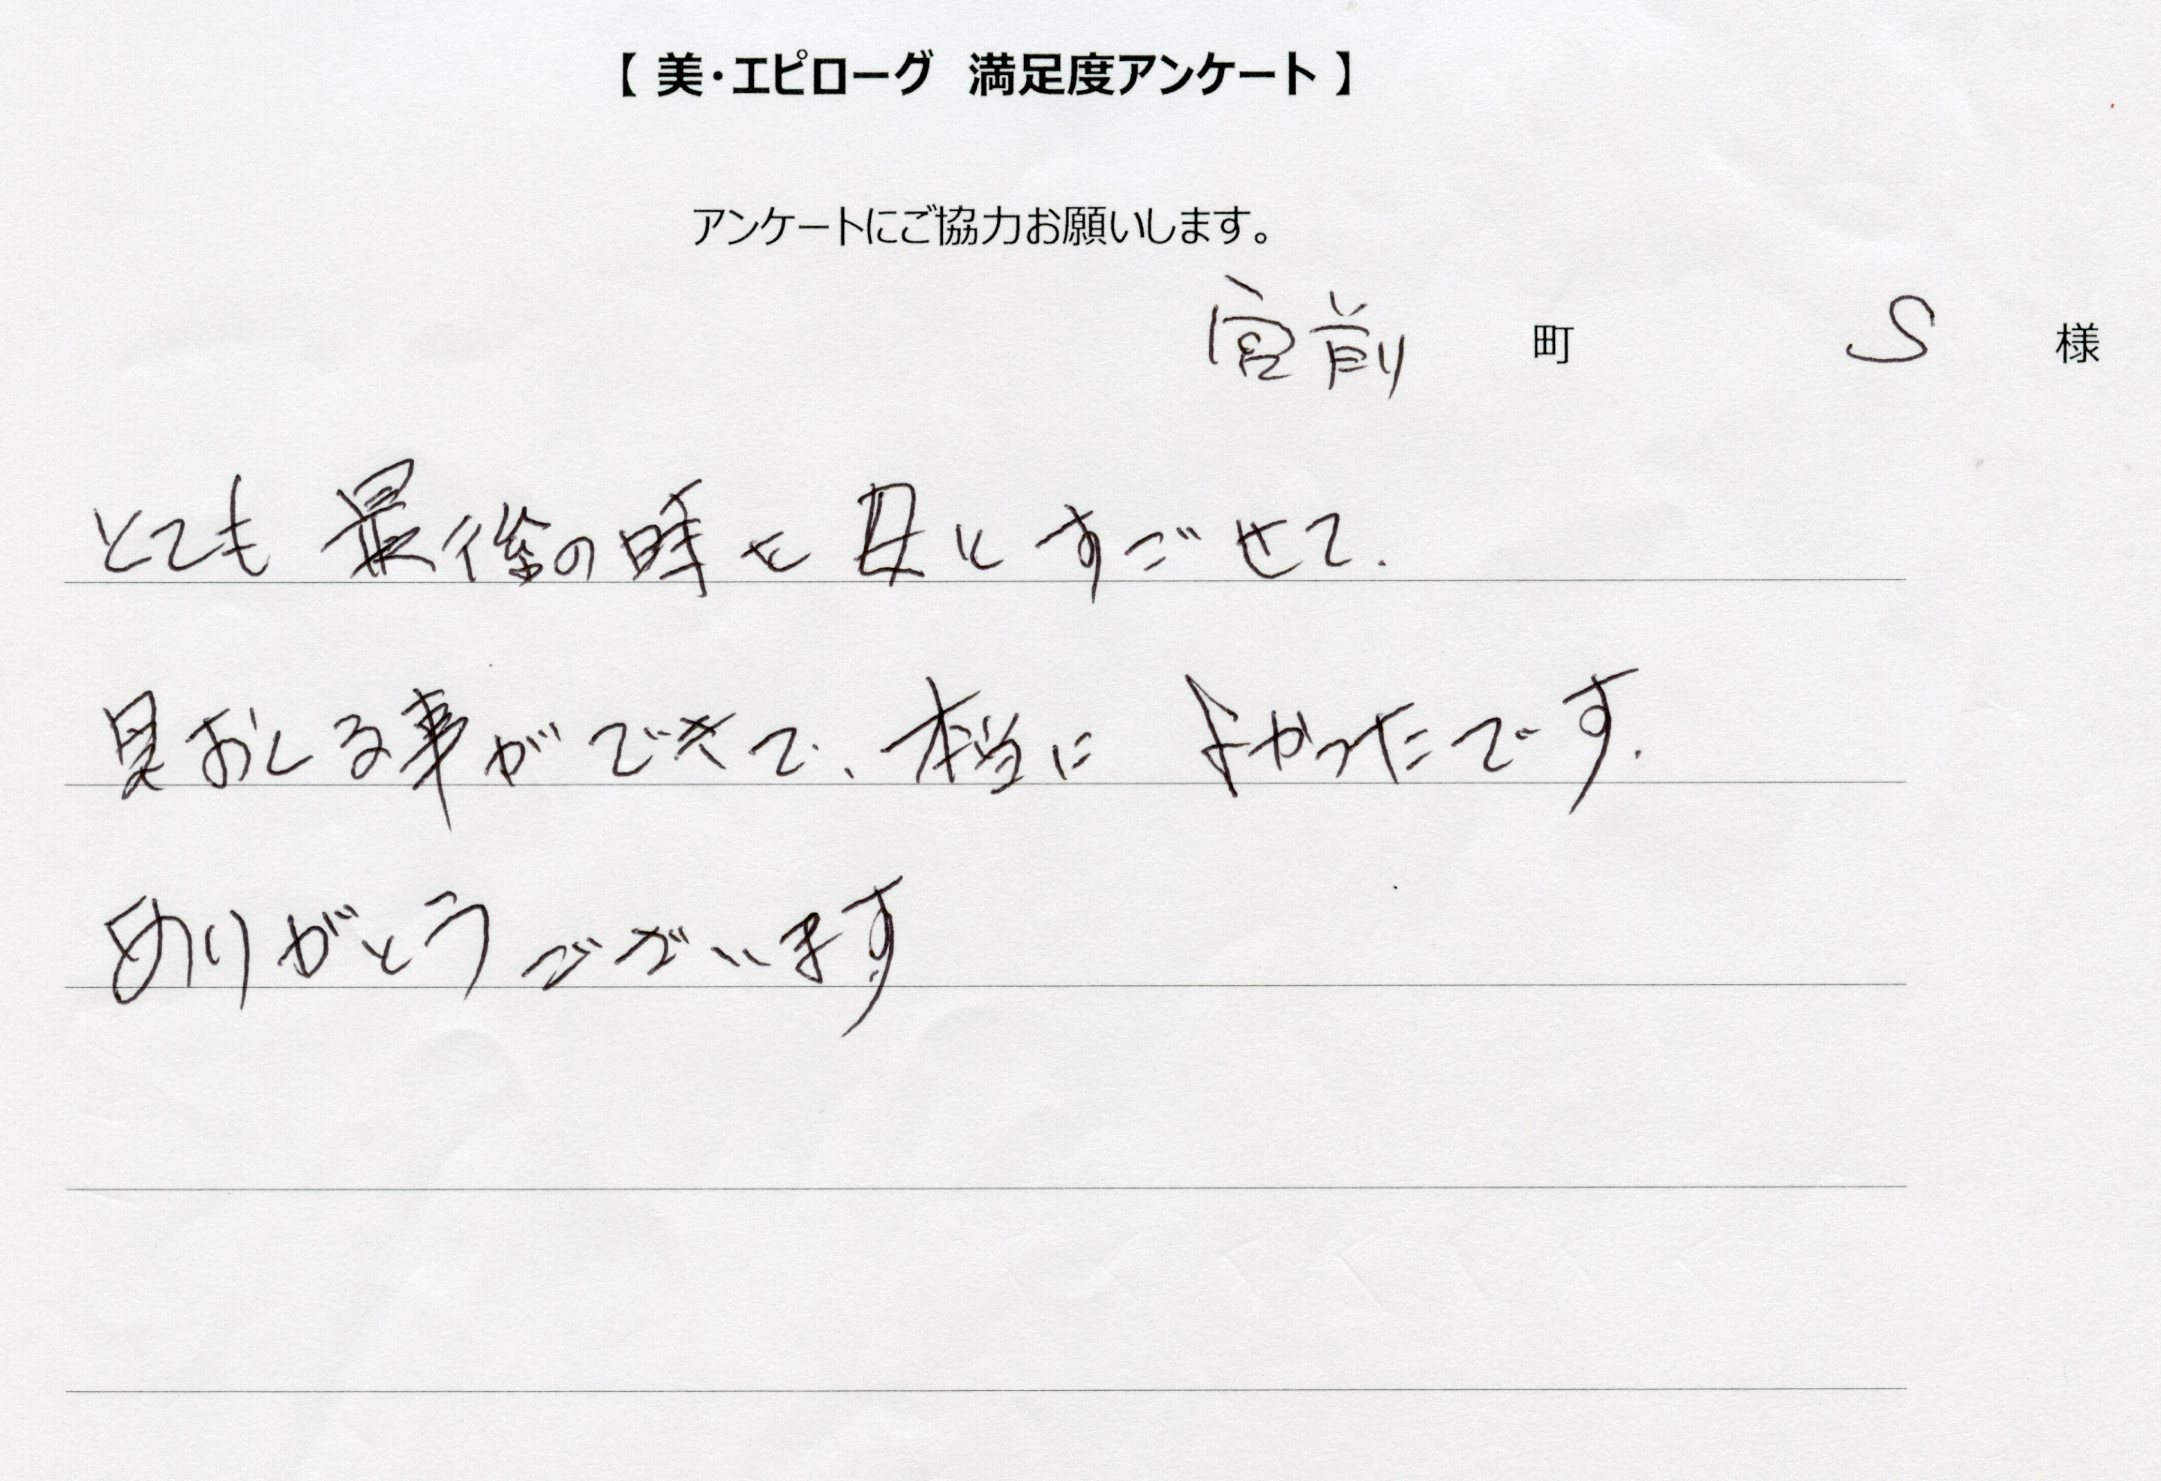 【 美・エピローグ 満足度アンケート 】
アンケートにご協力お願いします。
宮前 町 S 様
とても 最後の時を 母と すごせて.
見おくる事ができて、本当に よかったです.
ありがとうございます